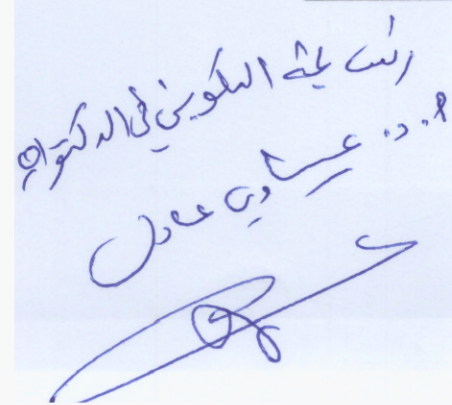 رئيس لجنة التكوين في الدكتوراه
أ.د. عيساوي عادل